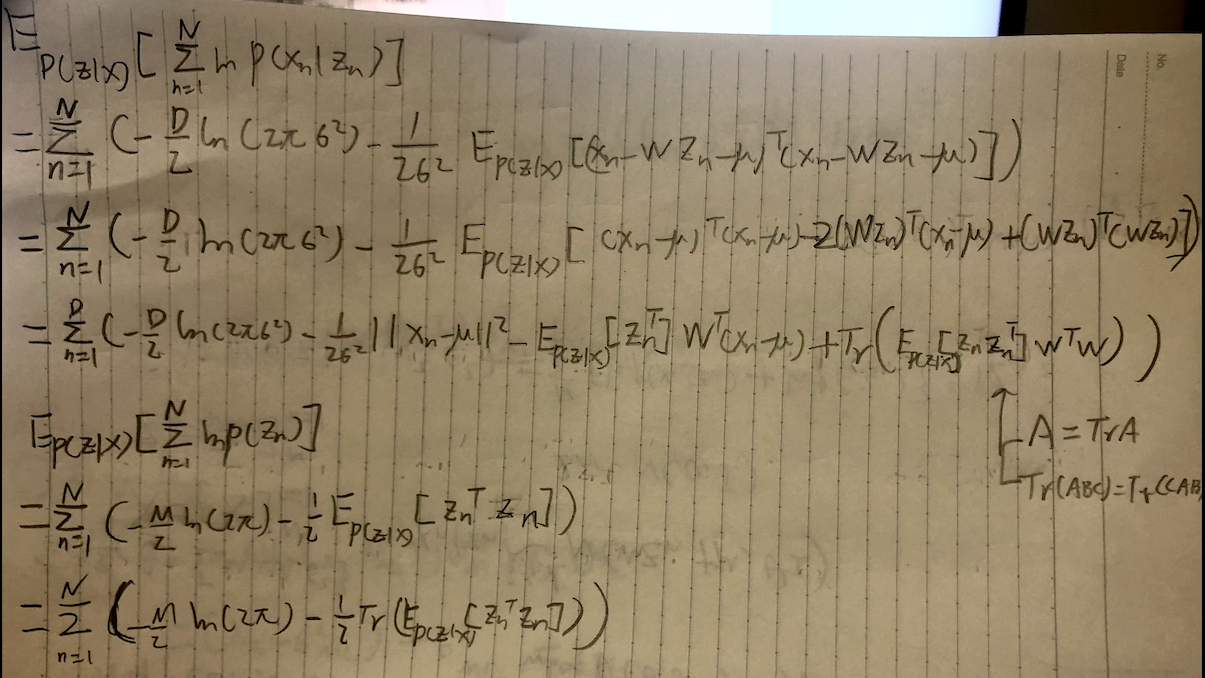 No.
Date
E_{P(Z|X)} [ \sum_{n=1}^{N} ln p(x_n|z_n) ]
= \sum_{n=1}^{N} ( - \frac{D}{2} ln (2πσ²) - \frac{1}{2σ²} E_{P(Z|X)} [ (x_n - W z_n - μ)^T (x_n - W z_n - μ) ] )
= \sum_{n=1}^{N} ( - \frac{D}{2} ln (2πσ²) - \frac{1}{2σ²} E_{P(Z|X)} [ (x_n - μ)^T (x_n - μ) - 2(W z_n)^T (x_n - μ) + (W z_n)^T (W z_n) ] )
= \sum_{n=1}^{D} ( - \frac{D}{2} ln (2πσ²) - \frac{1}{2σ²} ||x_n - μ||² - E_{P(Z|X)} [z_n^T] W^T (x_n - μ) + Tr ( E_{P(Z|X)} [z_n z_n^T] W^T W ) )
A = Tr A
Tr(ABC) = Tr(CAB)
E_{P(Z|X)} [ \sum_{n=1}^{N} ln p(z_n) ]
= \sum_{n=1}^{N} ( - \frac{M}{2} ln (2π) - \frac{1}{2} E_{P(Z|X)} [ z_n^T z_n ] )
= \sum_{n=1}^{N} ( - \frac{M}{2} ln (2π) - \frac{1}{2} Tr ( E_{P(Z|X)} [ z_n^T z_n ] ) )